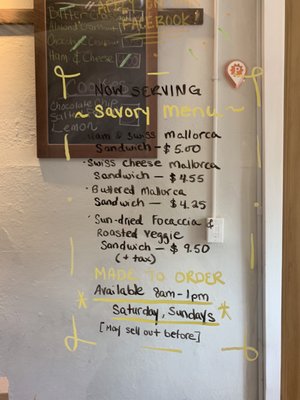 Butter Croissant
Almond Croissant
Chocolate Croissant
Ham & Cheese
FACEBOOK
Cookies
Chocolate Chip
Lemon
NOW SERVING
~ savory menu ~
Ham & Swiss mallorca
Sandwich - $5.00
· Swiss cheese mallorca
Sandwich - $4.55
· Buttered mallorca
Sandwich - $4.25
· Sun-dried Focaccia &
Roasted veggie
Sandwich - $9.50
(+ tax)
MADE TO ORDER
Available 8am-1pm
* Saturday, Sundays *
[May sell out before]